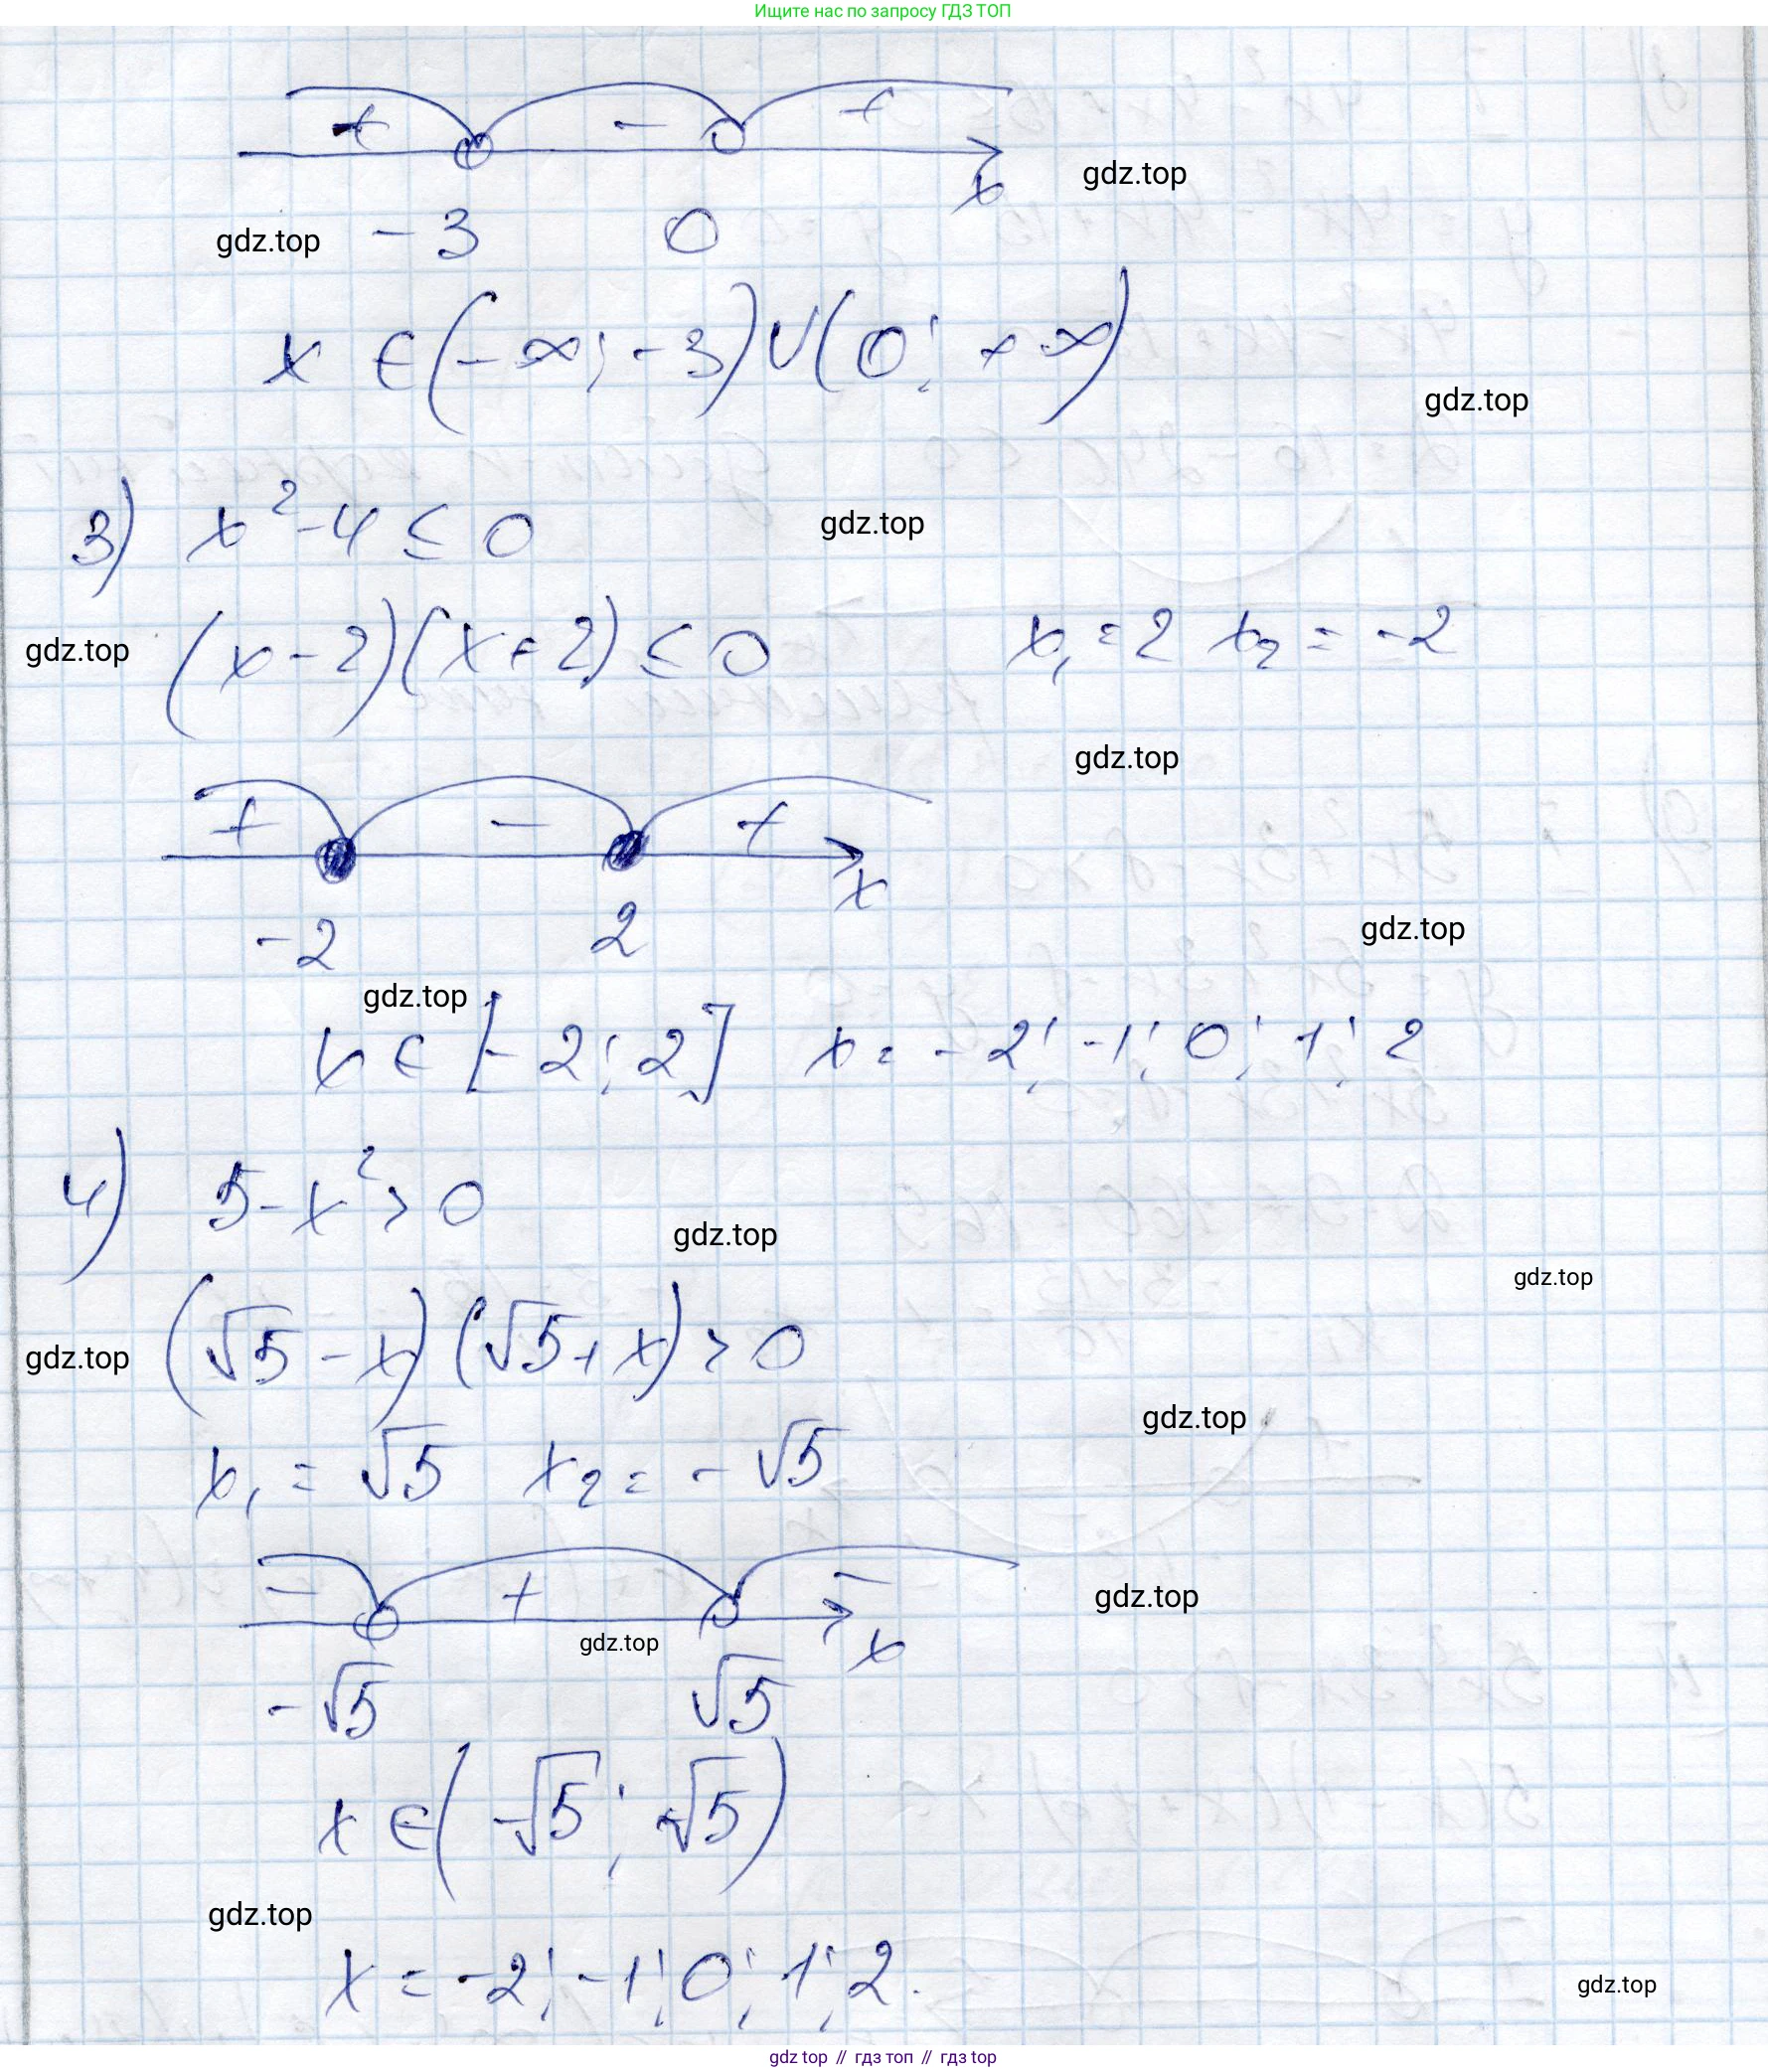 Ищите нас по запросу ГДЗ ТОП
+ − +
x
gdz.top
gdz.top
−3 0
x ∈ (−∞; −3) ∪ (0; +∞)
gdz.top
3) x² − 4 ≤ 0
gdz.top
gdz.top
(x − 2)(x + 2) ≤ 0 x₁ = 2 x₂ = −2
gdz.top
+ − +
x
−2 2
gdz.top
gdz.top
x ∈ [−2; 2] x = −2; −1; 0; 1; 2
4) 5 − x² > 0
gdz.top
gdz.top
(√5 − x)(√5 + x) > 0
gdz.top
gdz.top
x₁ = √5 x₂ = −√5
− + −
gdz.top
gdz.top
x
−√5 √5
x ∈ (−√5; √5)
gdz.top
x = −2; −1; 0; 1; 2.
gdz.top
gdz top // гдз топ // гдз top